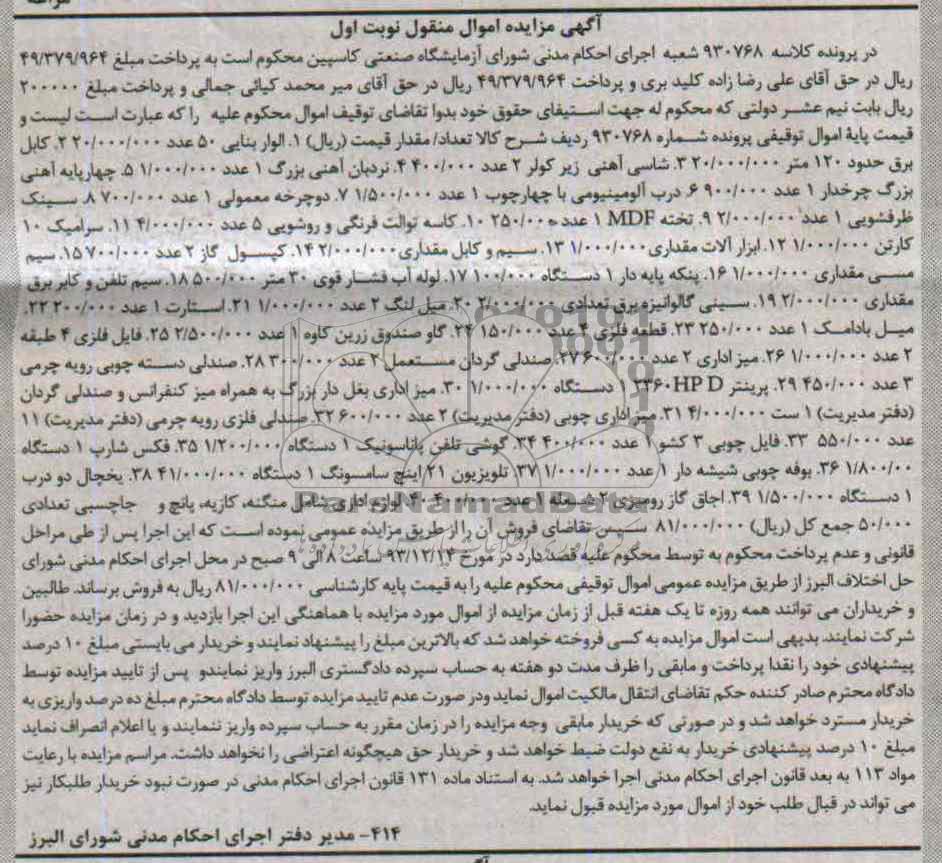 آگهی مزایده اموال منقول نوبت اول
در پرونده کلاسه ۹۳۰۷۶۸ شعبه اجرای احکام مدنی شورای آزمایشگاه صنعتی کاسپین محکوم است به پرداخت مبلغ ۴۹/۳۷۹/۹۶۴
ریال در حق آقای علی رضا زاده کلید بری و پرداخت ۴۹/۳۷۹/۹۶۴ ریال در حق آقای میر محمد کیائی جمالی و پرداخت مبلغ ۲۰۰۰۰۰
ریال بابت نیم عشر دولتی که محکوم له جهت استیفای حقوق خود بدوا تقاضای توقیف اموال محکوم علیه را که عبارت است لیست و
قیمت پایۀ اموال توقیفی پرونده شماره ۹۳۰۷۶۸ ردیف شرح کالا تعداد/مقدار قیمت (ریال) ۱. الوار بنایی ۵۰ عدد ۲۰/۰۰۰/۰۰۰ ۲. کابل
برق حدود ۱۲۰ متر ۲۰/۰۰۰/۰۰۰ ۳. شاسی آهنی زیر کولر ۲ عدد ۴۰۰/۰۰۰ ۴. نردبان آهنی بزرگ ۱ عدد ۱/۰۰۰/۰۰۰ ۵. چهارپایه آهنی
بزرگ چرخدار ۱ عدد ۹۰۰/۰۰۰ ۶. درب آلومینیومی با چهارچوب ۱ عدد ۱/۵۰۰/۰۰۰ ۷. دوچرخه معمولی ۱ عدد ۷۰۰/۰۰۰ ۸. سینک
ظرفشویی ۱ عدد ۲/۰۰۰/۰۰۰ ۹. تخته MDF ۱ عدد ۲۵۰/۰۰۰ ۱۰. کاسه توالت فرنگی و روشویی ۵ عدد ۴/۰۰۰/۰۰۰ ۱۱. سرامیک ۱۰
کارتن ۱/۰۰۰/۰۰۰ ۱۲. ابزار آلات مقداری ۱/۰۰۰/۰۰۰ ۱۳. سیم و کابل مقداری ۲/۰۰۰/۰۰۰ ۱۴. کپسول گاز ۲ عدد ۷۰۰/۰۰۰ ۱۵. سیم
مسی مقداری ۱/۰۰۰/۰۰۰ ۱۶. پنکه پایه دار ۱ دستگاه ۱۰۰/۰۰۰ ۱۷. لوله آب فشار قوی ۳۰ متر ۵۰۰/۰۰۰ ۱۸. سیم تلفن و کابر برق
مقداری ۲/۰۰۰/۰۰۰ ۱۹. سینی گالوانیزه برق تعدادی ۲/۰۰۰/۰۰۰ ۲۰. میل لنگ ۲ عدد ۱/۰۰۰/۰۰۰ ۲۱. استارت ۱ عدد ۲۰۰/۰۰۰ ۲۲.
میل بادامک ۱ عدد ۲۵۰/۰۰۰ ۲۳. قطعه فلزی ۴ عدد ۱۵۰/۰۰۰ ۲۴. گاو صندوق زرین کاوه ۱ عدد ۲/۵۰۰/۰۰۰ ۲۵. فایل فلزی ۴ طبقه
۲ عدد ۱/۰۰۰/۰۰۰ ۲۶. میز اداری ۲ عدد ۶۰۰/۰۰۰ ۲۷. صندلی گردان مستعمل ۲ عدد ۳۰۰/۰۰۰ ۲۸. صندلی دسته چوبی رویه چرمی
۳ عدد ۴۵۰/۰۰۰ ۲۹. پرینتر HP D ۲۳۶۰ ۱ دستگاه ۱/۰۰۰/۰۰۰ ۳۰. میز اداری بغل دار بزرگ به همراه میز کنفرانس و صندلی گردان
(دفتر مدیریت) ۱ ست ۴/۰۰۰/۰۰۰ ۳۱. میز اداری چوبی (دفتر مدیریت) ۲ عدد ۶۰۰/۰۰۰ ۳۲. صندلی فلزی رویه چرمی (دفتر مدیریت) ۱۱
عدد ۵۵۰/۰۰۰ ۳۳. فایل چوبی ۳ کشو ۱ عدد ۴۰۰/۰۰۰ ۳۴. گوشی تلفن پاناسونیک ۱ دستگاه ۱/۲۰۰/۰۰۰ ۳۵. فکس شارپ ۱ دستگاه
۱/۸۰۰/۰۰ ۳۶. بوفه چوبی شیشه دار ۱ عدد ۱/۰۰۰/۰۰۰ ۳۷. تلویزیون ۲۱ اینچ سامسونگ ۱ دستگاه ۴۱/۰۰۰/۰۰۰ ۳۸. یخچال دو درب
۱ دستگاه ۱/۵۰۰/۰۰۰ ۳۹. اجاق گاز رومیزی ۲ شعله ۱ عدد ۴۰۰/۰۰۰ ۴۰. لوازم اداری شامل منگنه، کازیه، پانچ و جاچسبی تعدادی
۵۰/۰۰۰ جمع کل (ریال) ۸۱/۰۰۰/۰۰۰ سپس تقاضای فروش آن را از طریق مزایده عمومی نموده است که این اجرا پس از طی مراحل
قانونی و عدم پرداخت محکوم به توسط محکوم علیه قصد دارد در مورخ ۹۳/۱۲/۱۴ ساعت ۸ الی ۹ صبح در محل اجرای احکام مدنی شورای
حل اختلاف البرز از طریق مزایده عمومی اموال توقیفی محکوم علیه را به قیمت پایه کارشناسی ۸۱/۰۰۰/۰۰۰ ریال به فروش برساند. طالبین
و خریداران می توانند همه روزه تا یک هفته قبل از زمان مزایده از اموال مورد مزایده با هماهنگی این اجرا بازدید و در زمان مزایده حضورا
شرکت نمایند. بدیهی است اموال مزایده به کسی فروخته خواهد شد که بالاترین مبلغ را پیشنهاد نمایند و خریدار می بایستی مبلغ ۱۰ درصد
پیشنهادی خود را نقدا پرداخت و مابقی را ظرف مدت دو هفته به حساب سپرده دادگستری البرز واریز نمایندو پس از تایید مزایده توسط
دادگاه محترم صادر کننده حکم تقاضای انتقال مالکیت اموال نماید ودر صورت عدم تایید مزایده توسط دادگاه محترم مبلغ ده درصد واریزی به
خریدار مسترد خواهد شد و در صورتی که خریدار مابقی وجه مزایده را در زمان مقرر به حساب سپرده واریز ننمایند و یا اعلام انصراف نماید
مبلغ ۱۰ درصد پیشنهادی خریدار به نفع دولت ضبط خواهد شد و خریدار حق هیچگونه اعتراضی را نخواهد داشت. مراسم مزایده با رعایت
مواد ۱۱۳ به بعد قانون اجرای احکام مدنی اجرا خواهد شد. به استناد ماده ۱۳۱ قانون اجرای احکام مدنی در صورت نبود خریدار طلبکار نیز
می تواند در قبال طلب خود از اموال مورد مزایده قبول نماید.
۴۱۴- مدیر دفتر اجرای احکام مدنی شورای البرز
ParsNamadData